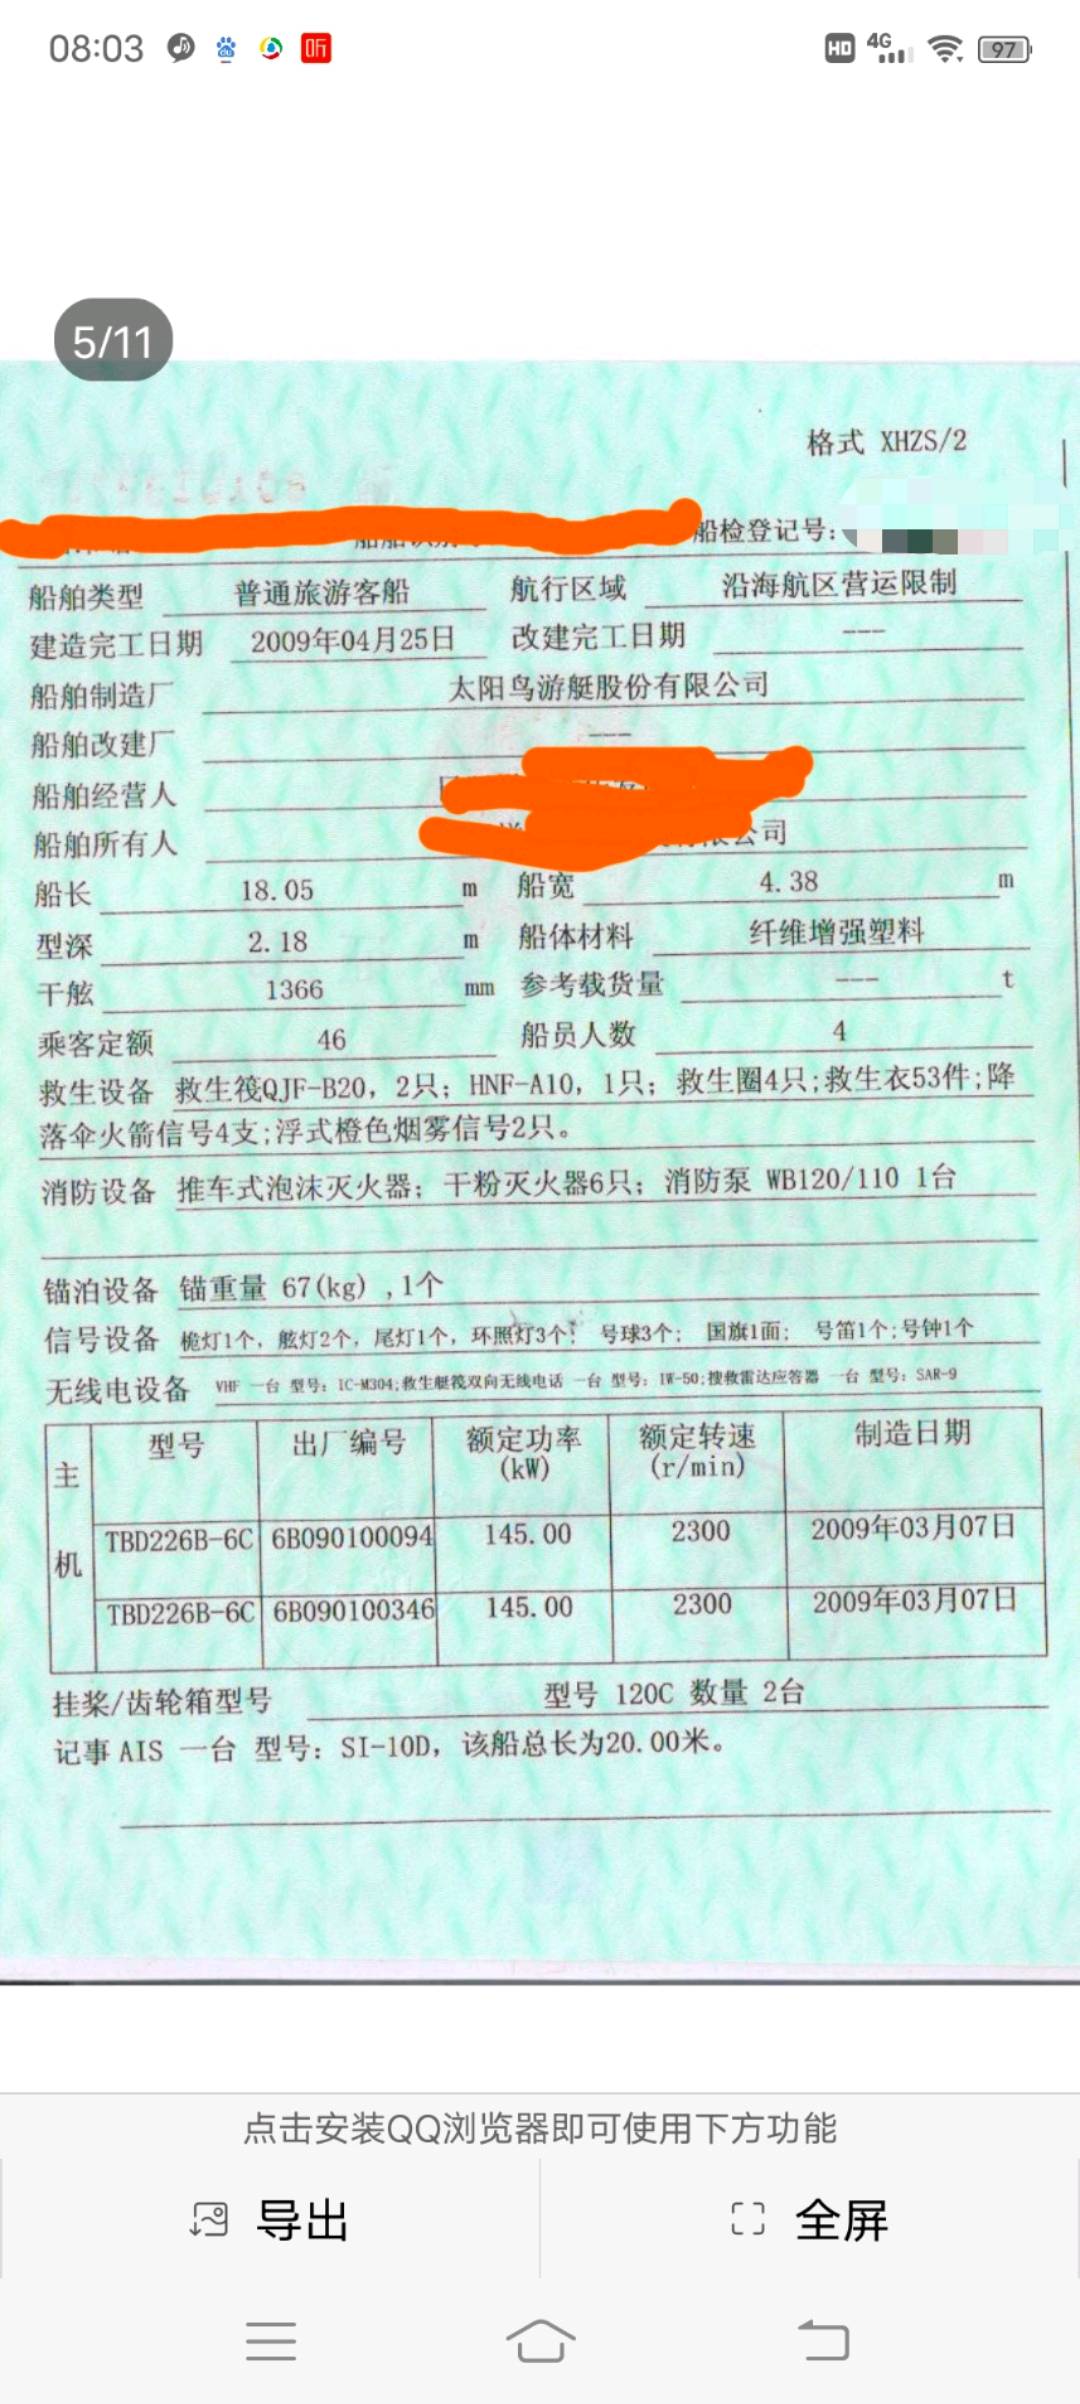 08:03
听
HD 4G 97
5/11
格式 XHZS/2
船检登记号:
船舶类型 普通旅游客船 航行区域 沿海航区营运限制
建造完工日期 2009年04月25日 改建完工日期 ---
船舶制造厂 太阳鸟游艇股份有限公司
船舶改建厂 ---
船舶经营人
船舶所有人 公司
船长 18.05 m 船宽 4.38 m
型深 2.18 m 船体材料 纤维增强塑料
干舷 1366 mm 参考载货量 --- t
乘客定额 46 船员人数 4
救生设备 救生筏QJF-B20, 2只; HNF-A10, 1只; 救生圈4只;救生衣53件;降
落伞火箭信号4支;浮式橙色烟雾信号2只。
消防设备 推车式泡沫灭火器; 干粉灭火器6只; 消防泵 WB120/110 1台
锚泊设备 锚重量 67(kg) ,1个
信号设备 桅灯1个, 舷灯2个, 尾灯1个, 环照灯3个; 号球3个; 国旗1面; 号笛1个;号钟1个
无线电设备 VHF 一台 型号: IC-M304;救生艇筏双向无线电话 一台 型号: IW-50;搜救雷达应答器 一台 型号: SAR-9
主机 型号 出厂编号 额定功率 (kW) 额定转速 (r/min) 制造日期
TBD226B-6C 6B090100094 145.00 2300 2009年03月07日
TBD226B-6C 6B090100346 145.00 2300 2009年03月07日
挂桨/齿轮箱型号 型号 120C 数量 2台
记事 AIS 一台 型号: SI-10D, 该船总长为20.00米。
点击安装QQ浏览器即可使用下方功能
导出 全屏